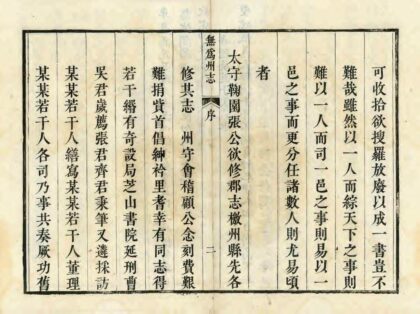 可收拾欲搜羅放廢以成一書豈不
難哉雖然以一人而綜天下之事則
難以一人而司一邑之事則易以一
邑之事而更分任諸數人則尤易頃
者
太守鞠園張公欲修郡志檄州縣先各
無爲州志
序
二
修其志 州守會稽顧公念刻費艱
難捐貲首倡紳衿里耆幸有同志得
若干緡有奇設局芝山書院延刑曹
吳君歲薦張君齊君秉筆又遴採訪
某某若干人繕寫某某若干人董理
某某若干人各司乃事共奏厥功舊